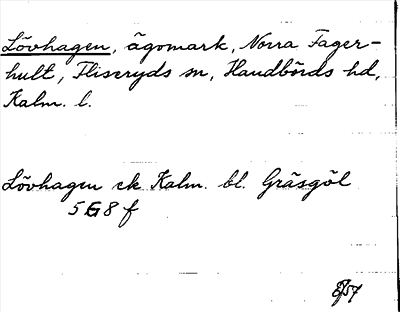 Lövhagen, ägomark, Norra Fager-
hult, Fliseryds sn, Handbörds hd,
Kalm. l.
Lövhagen ek Kalm. bl. Gräsgöl
5G8f